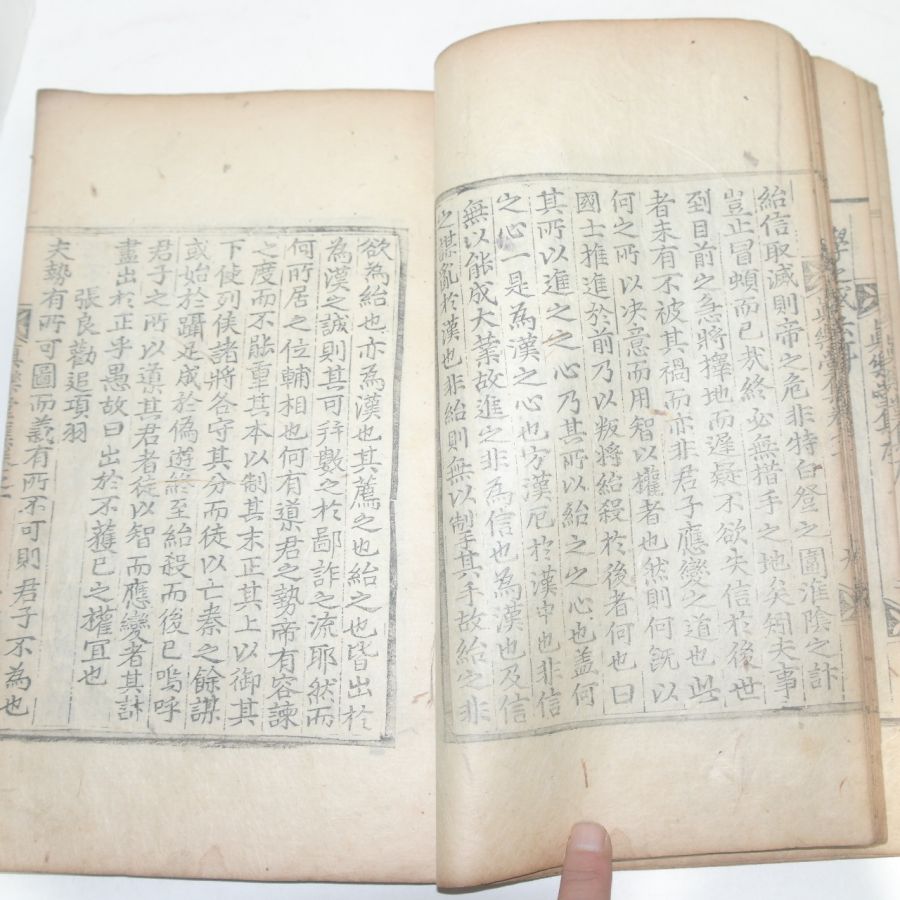 紿信取滅則帝之危非特白登之圍淮陰之計
豈正冒頓而已㢤終必無措手之地矣矧夫事
到目前之急將擇地而遲疑不欲失信於後世
者未有不被其禍而亦非君子應變之道也此
何之所以决意而用智以權者也然則何旣以
國士推進於前乃以叛將紿殺於後者何也曰
其所以進之之心乃其所以紿之之心也盖何
之心一是為漢之心也方漢厄於漢中也非信
無以能成大業故進之非為信也為漢也及信
之謀亂於漢也非紿則無以制其手故紿之非
欲為紿也亦為漢也其薦之也紿之也皆出於
為漢之誠則其可幷數之於鄙詐之流耶然而
何所居之位輔相也何有導君之勢帝有容諫
之度而不能重其本以制其末正其上以御其
下使列侯諸將各守其分而徒以亡秦之餘謀
或始於躡足成於偽遊終至紿殺而後已嗚呼
君子之所以導其君者徒以智而應變者其計
盡出於正乎愚故曰出於不獲已之權宜也
張良勸追項羽
夫勢有所可圖而義有所不可則君子不為也